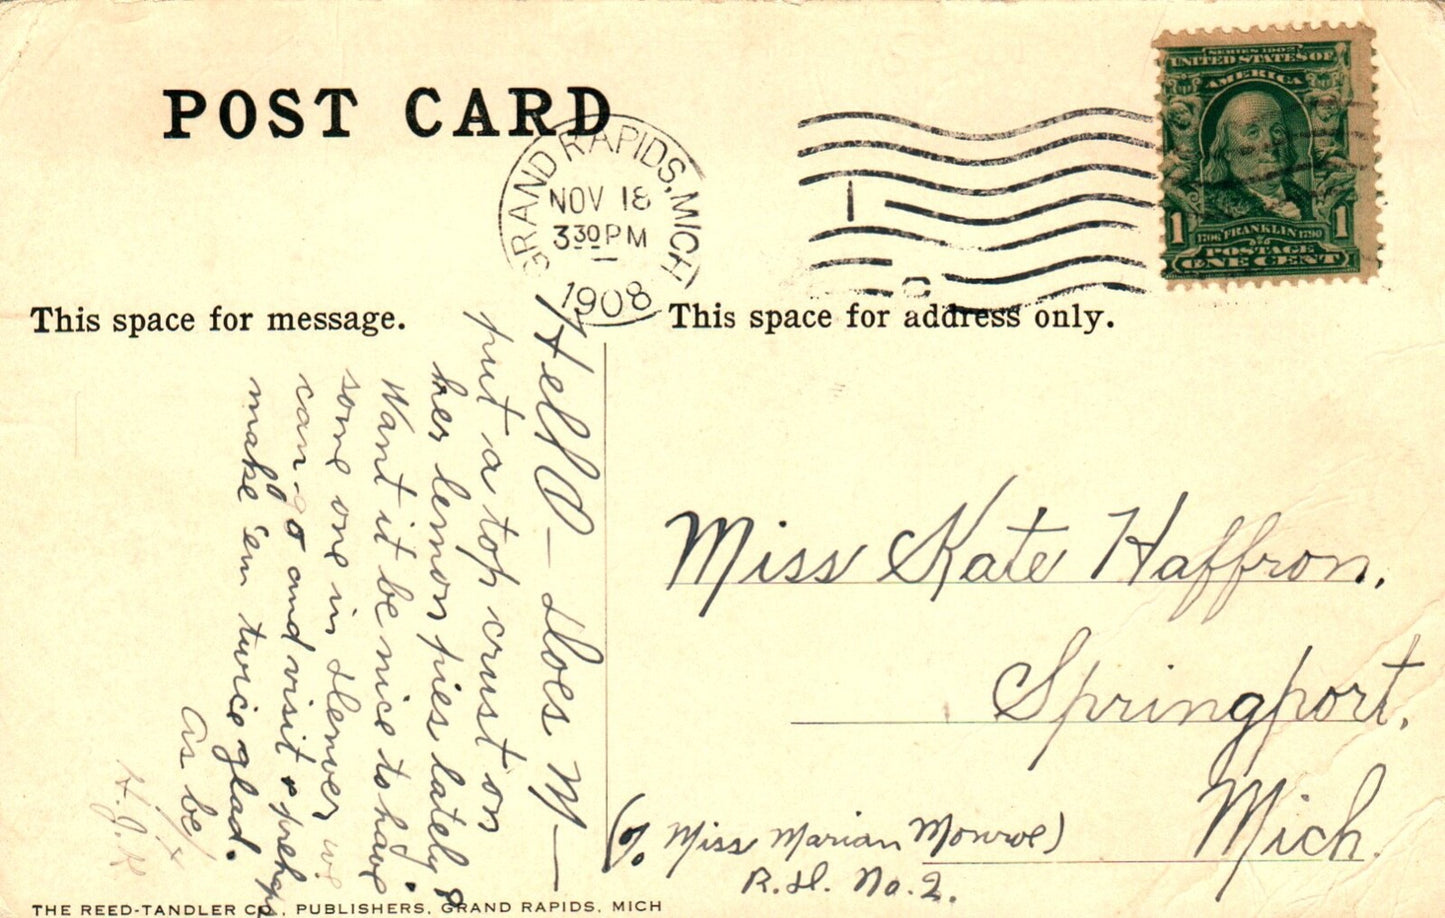 POST CARD
GRAND RAPIDS, MICH
NOV 18
3 30 PM
1908
SERIES 1902
UNITED STATES OF
AMERICA
1 1
1706 FRANKLIN 1790
POSTAGE
ONE CENT
This space for message.
This space for address only.
Hello - Does M—
put a top crust on
her lemon pies lately?
Want it be nice to have
some one in Denver we
can go and visit & prehaps
make 'em twice glad.
As be/
H.J.
Miss Kate Haffron,
Springport,
Mich.
(% Miss Marian Monroe)
R.D. No. 2.
THE REED-TANDLER CO., PUBLISHERS, GRAND RAPIDS, MICH